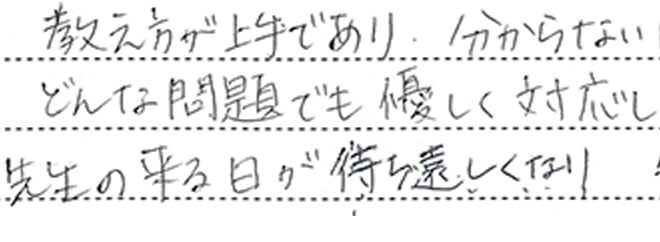 教え方が上手であり、分からない
どんな問題でも優しく対応し
先生の来る日が待ち遠しくなり